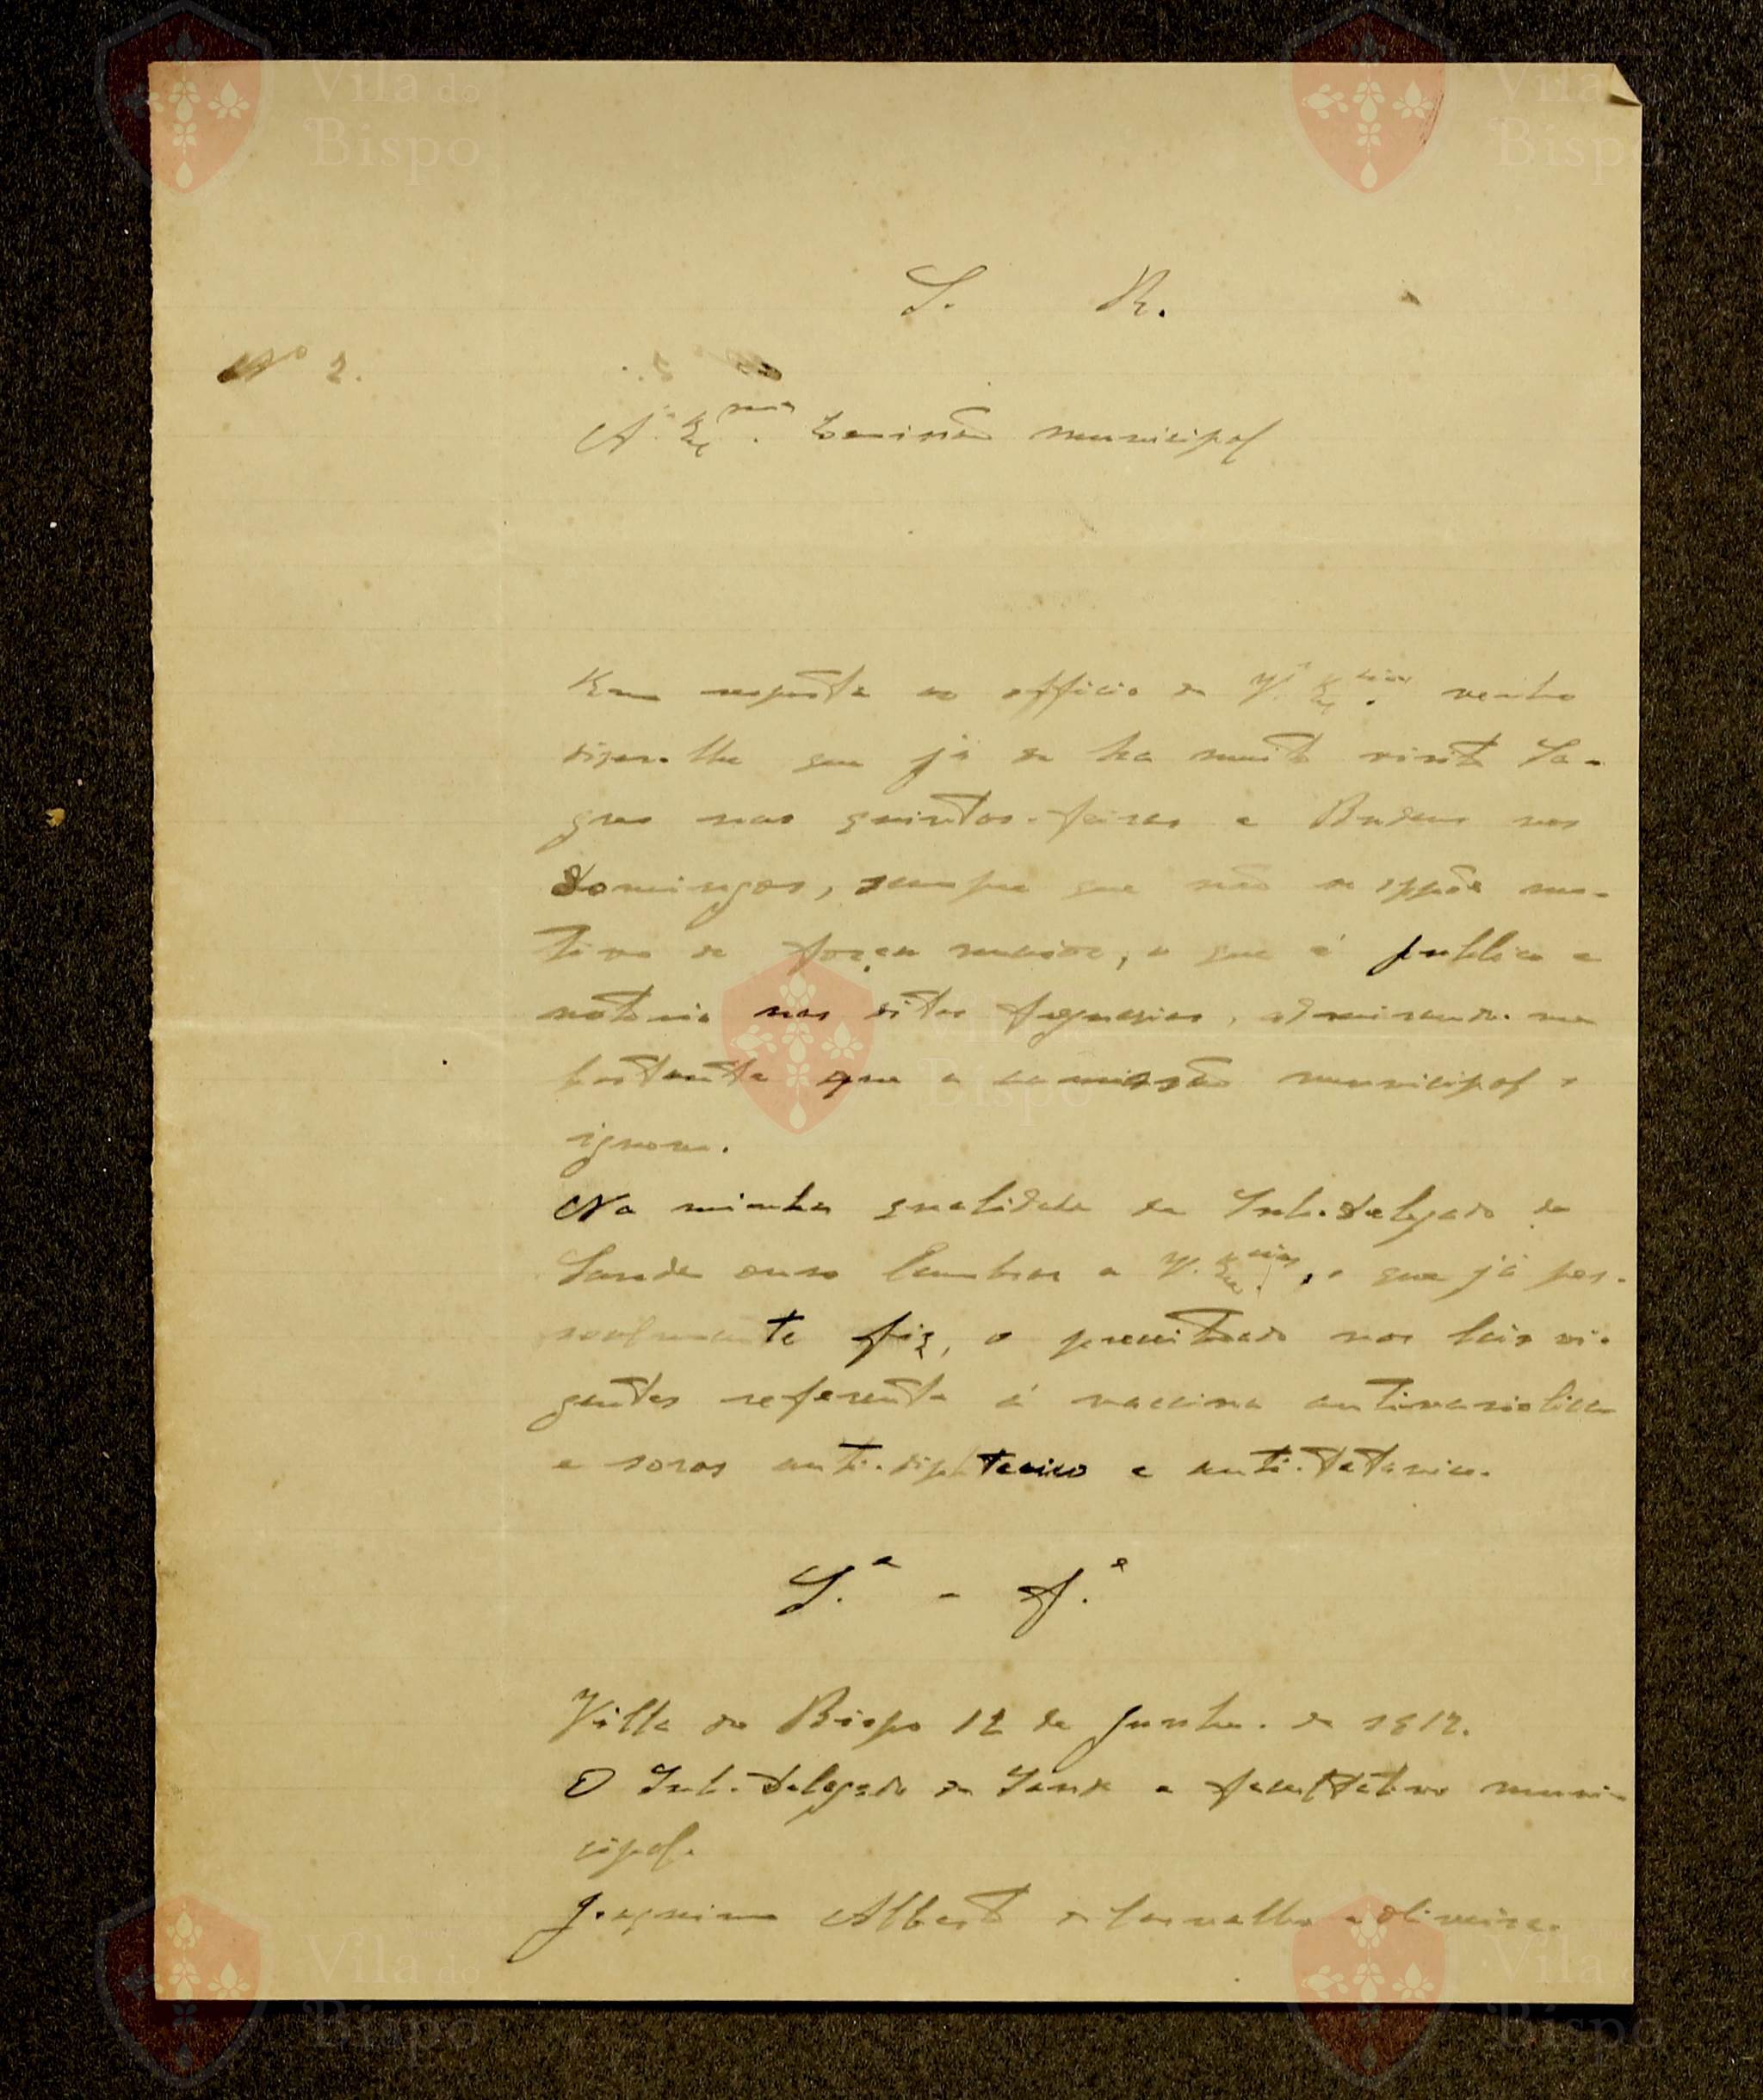 Vila do
Bispo
Vila do
Bispo
S. R.
Nº 2.
A' Ex.ma Comissão municipal
Em resposta ao officio de V. Ex.cias venho
dizer-lhe que já de ha muito visito Sa-
gres nas quintas-feiras e Budens nos
domingos, sempre que não se oppõe mo-
tivo de força maior, o que é publico e
notorio nas ditas freguesias, admirando-me
bastante que a comissão municipal o
ignore.
Na minha qualidade de Sub-delegado de
Saude ouso lembrar a V. Ex.cias, o que já pes-
soalmente fiz, o preceituado nas leis vi-
gentes referente á vaccina antivariolica
e soros anti-diphterico e anti-tetanico.
S.e - F.e
Villa do Bispo 12 de Junho de 1917.
O Sub-delegado de Saude e facultativo muni-
cipal.
Joaquim Alberto de Carvalho e Oliveira.
Vila do
Bispo
Vila do
Bispo